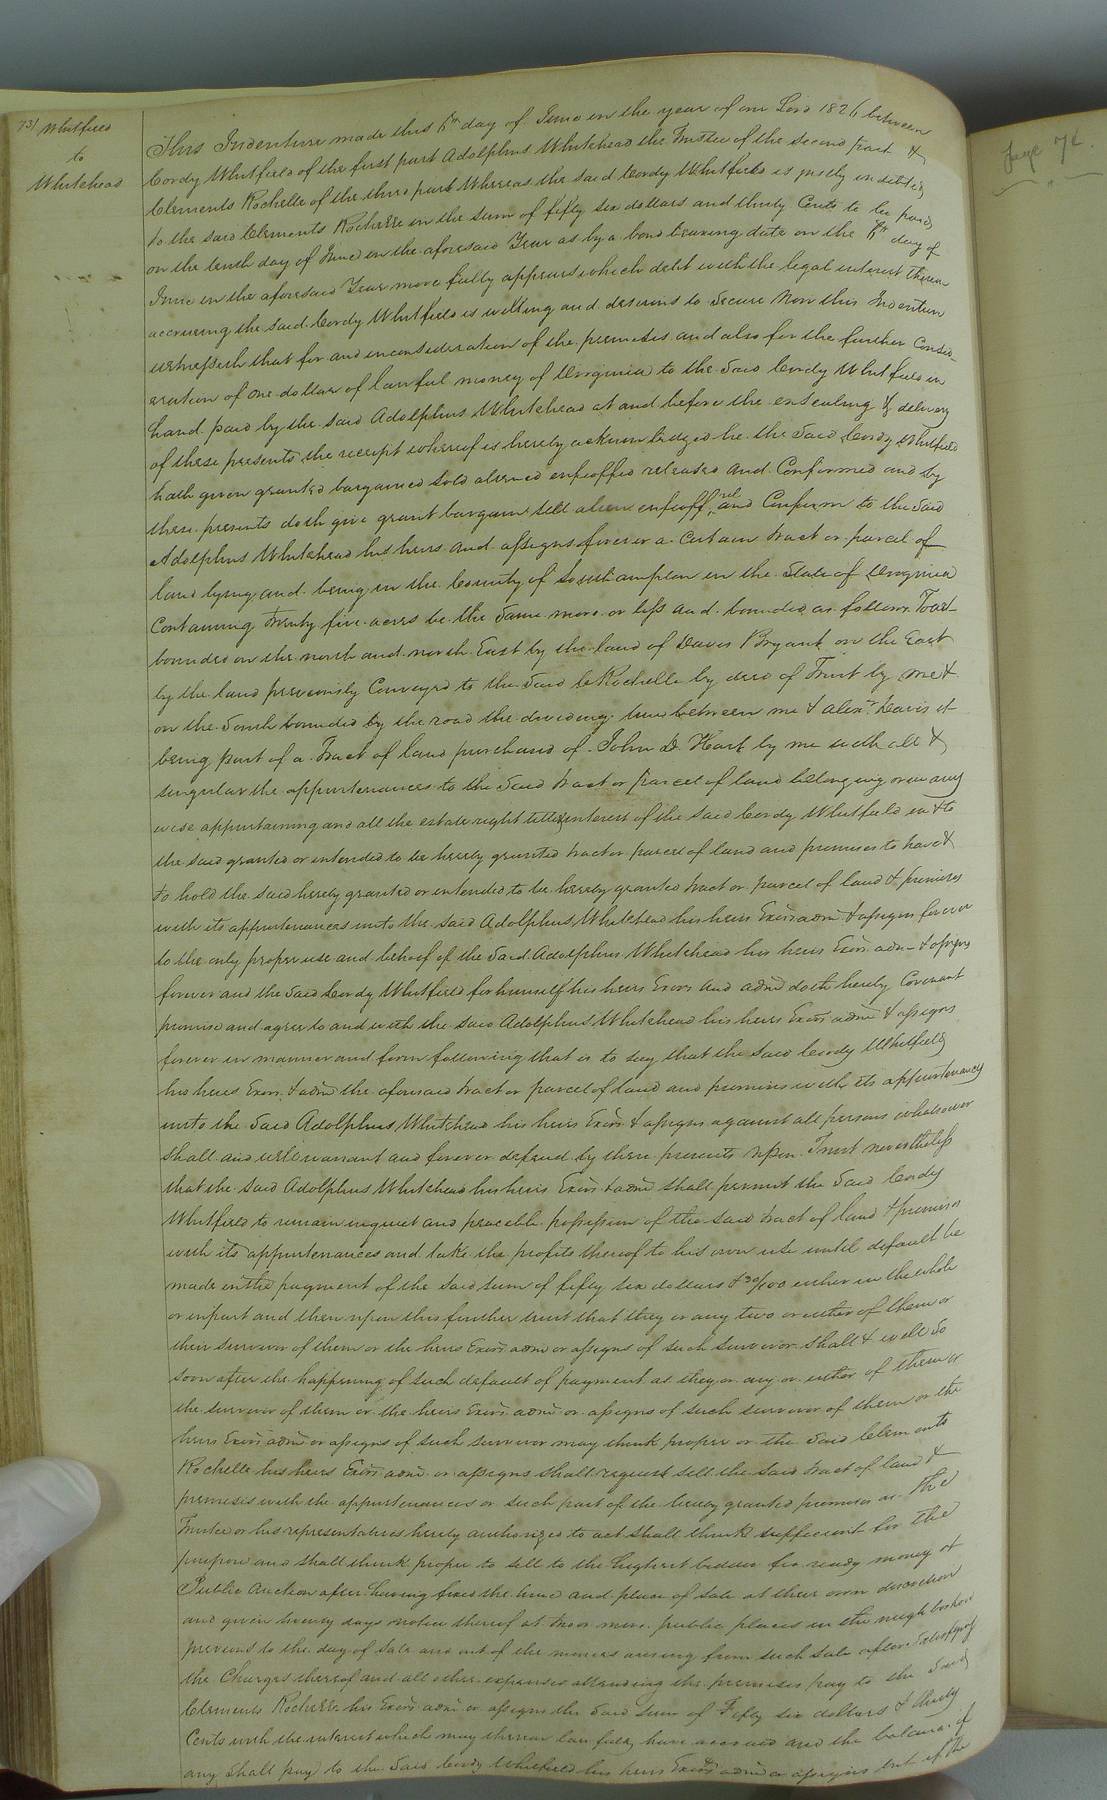 731 Whitfield
to
Whitehead
page 72.
This Indenture made this 6th day of June in the year of our Lord 1826 between
Cordy Whitfield of the first part Adolphus Whitehead the Trustee of the second part &
Clements Rochelle of the third part Whereas the said Cordy Whitfield is justly indebted
to the said Clements Rochelle in the sum of fifty six dollars and thirty Cents to be paid
on the tenth day of June in the aforesaid Year as by a bond bearing date on the 6th day of
June in the aforesaid Year more fully appears which debt with the legal interest thereon
accruing the said Cordy Whitfield is willing and desirous to Secure Now this Indenture
witnesseth that for and in consideration of the premises and also for the further Consid-
eration of one dollar of lawful money of Virginia to the Said Cordy Whitfield in
hand paid by the said Adolphus Whitehead at and before the ensealing & delivery
of these presents the receipt whereof is hereby acknowledged he the Said Cordy Whitfield
hath given granted bargained sold aliened enfeoffed released and Confirmed and by
these presents doth give grant bargain sell alien enfeoff rel and Confirm to the Said
Adolphus Whitehead his heirs and assigns forever a certain tract or parcel of
land lying and being in the County of Southampton in the State of Virginia
Containing Twenty five acres be the Same more or less and bounded as follows To wit
bounded on the north and north East by the land of Davis Bryant on the East
by the land previously Conveyed to the Said C Rochelle by deed of Trust by me &
on the South bounded by the road the dividing line between me & Alexr Davis it
being part of a Tract of land purchased of John D. Hart by me with all &
singular the appurtenances to the Said tract or parcel of land belonging or in any
wise appertaining and all the estate right title & interest of the said Cordy Whitfield in & to
the said granted or intended to be hereby granted tract or parcel of land and premises to have &
to hold the said hereby granted or intended to be hereby granted tract or parcel of land & premises
with its appurtenances unto the said Adolphus Whitehead his heirs Exors admr & assigns forever
to the only proper use and behoof of the Said Adolphus Whitehead his heirs Exors adm & assigns
forever and the Said Cordy Whitfield for himself his heirs Exors and admr doth hereby Covenant
promise and agree to and with the said Adolphus Whitehead his heirs Exors admr & assigns
forever in manner and form following that is to say that the Said Cordy Whitfield
his heirs Exors & admr the aforesaid tract or parcel of land and premises with its appurtenances
unto the Said Adolphus Whitehead his heirs Exors & assigns against all persons whatsoever
Shall and will warrant and forever defend by these presents Upon Trust nevertheless
that the Said Adolphus Whitehead his heirs Exors & admr shall permit the Said Cordy
Whitfield to remain in quiet and peacible possession of the said tract of land & premises
with its appurtenances and take the profits thereof to his own use until default be
made in the payment of the Said sum of fifty six dollars & 30/100 either in the whole
or in part and then upon this further trust that they or any two or either of them or
the survivor of them or the heirs Exors admr or assigns of such survivor shall & will So
soon after the happening of such default of payment as they or any or either of them or
the survivor of them or the heirs Exors admr or assigns of such survivor of them or the
heirs Exors admr or assigns of such survivor may think proper or the Said Clements
Rochelle his heirs Exors admr or assigns Shall request sell the said tract of land &
premises with the appurtenances or such part of the hereby granted premises as the
Trustee or his representatives hereby authorized to act shall think sufficient for the
purpose and shall think proper to sell to the highest bidder for ready money at
Public Auction after having fixed the time and place of Sale at their own discretion
and given twenty days notice thereof at two or more public places in the neighborhood
previous to the day of Sale and out of the monies arising from such Sale after Satisfying
the Charges thereof and all other expenses attending the premises pay to the Said
Clements Rochelle his Exors admr or assigns the Said Sum of Fifty six dollars & thirty
Cents with the interest which may thereon lawfully have accrued and the balance if
any Shall pay to the Said Cordy Whitfield his heirs Exors admr or assigns but if the